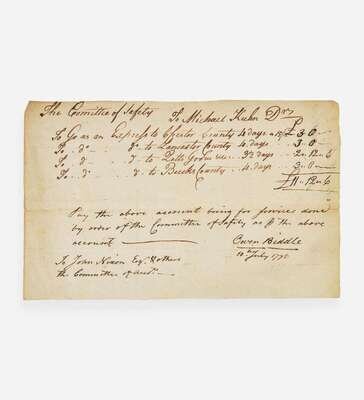 The Committee of Safety To Michael Kuhn Dr
£
To Go as an Express to Chester County 4 days a 15/ £ 3.0 —
To .. do .. do to Lancaster County 4 days .. 3.0 —
To .. do to 3½ days .. 2..12..6
To .. do to Bucks County .. 4 days .. 3..0 —
£11..12..6
Pay the above account being for services done
by order of the Committee of Safety as the above
account
Owen Biddle
10th July 1776
To John Nixon Esq. & others
the Committee of